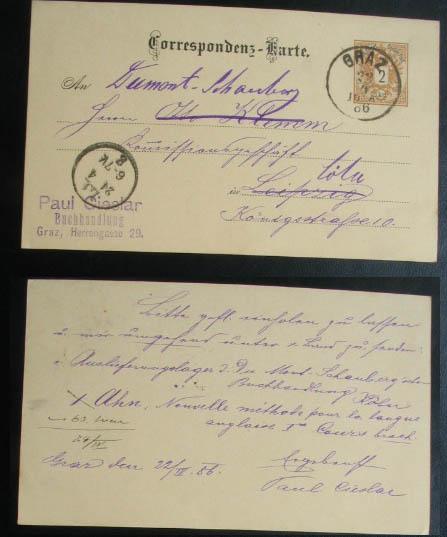 Correspondenz-Karte.
2
GRAZ
86
An Dumont-Schauberg
Herrn Otto Klemm
Commissionsgeschäft
in Leipzig Cöln
Königsstrasse 10.
24 4
6-7N
Paul Cieslar
Buchhandlung
Graz, Herrengasse 29.
Bitte gefl. einholen zu lassen
u. mir umgehend unter x Band zu senden:
v. Auslieferungslager d. Du Mont-Schauberg'schen
Buchhandlung Köln
1 Ahn, Nouvelle méthode pour la langue
anglaise 1er Cours broch.
24/IV
Graz den 22/IV. 86.
Ergebenst
Paul Cieslar